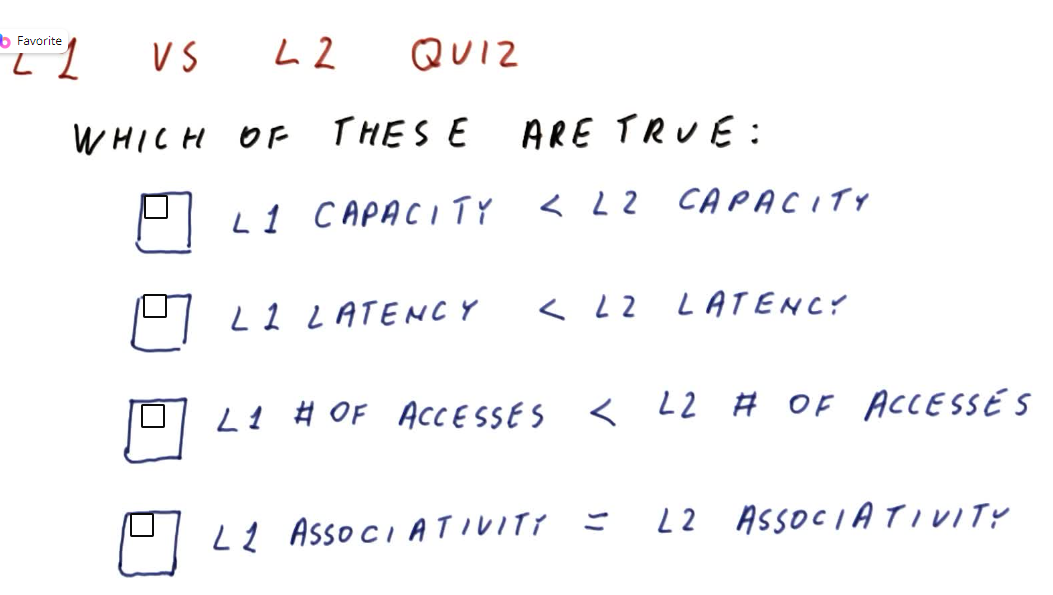 Favorite
L1 VS L2 QUIZ
WHICH OF THESE ARE TRUE:
L1 CAPACITY < L2 CAPACITY
L1 LATENCY < L2 LATENCY
L1 # OF ACCESSES < L2 # OF ACCESSES
L1 ASSOCIATIVITY = L2 ASSOCIATIVITY